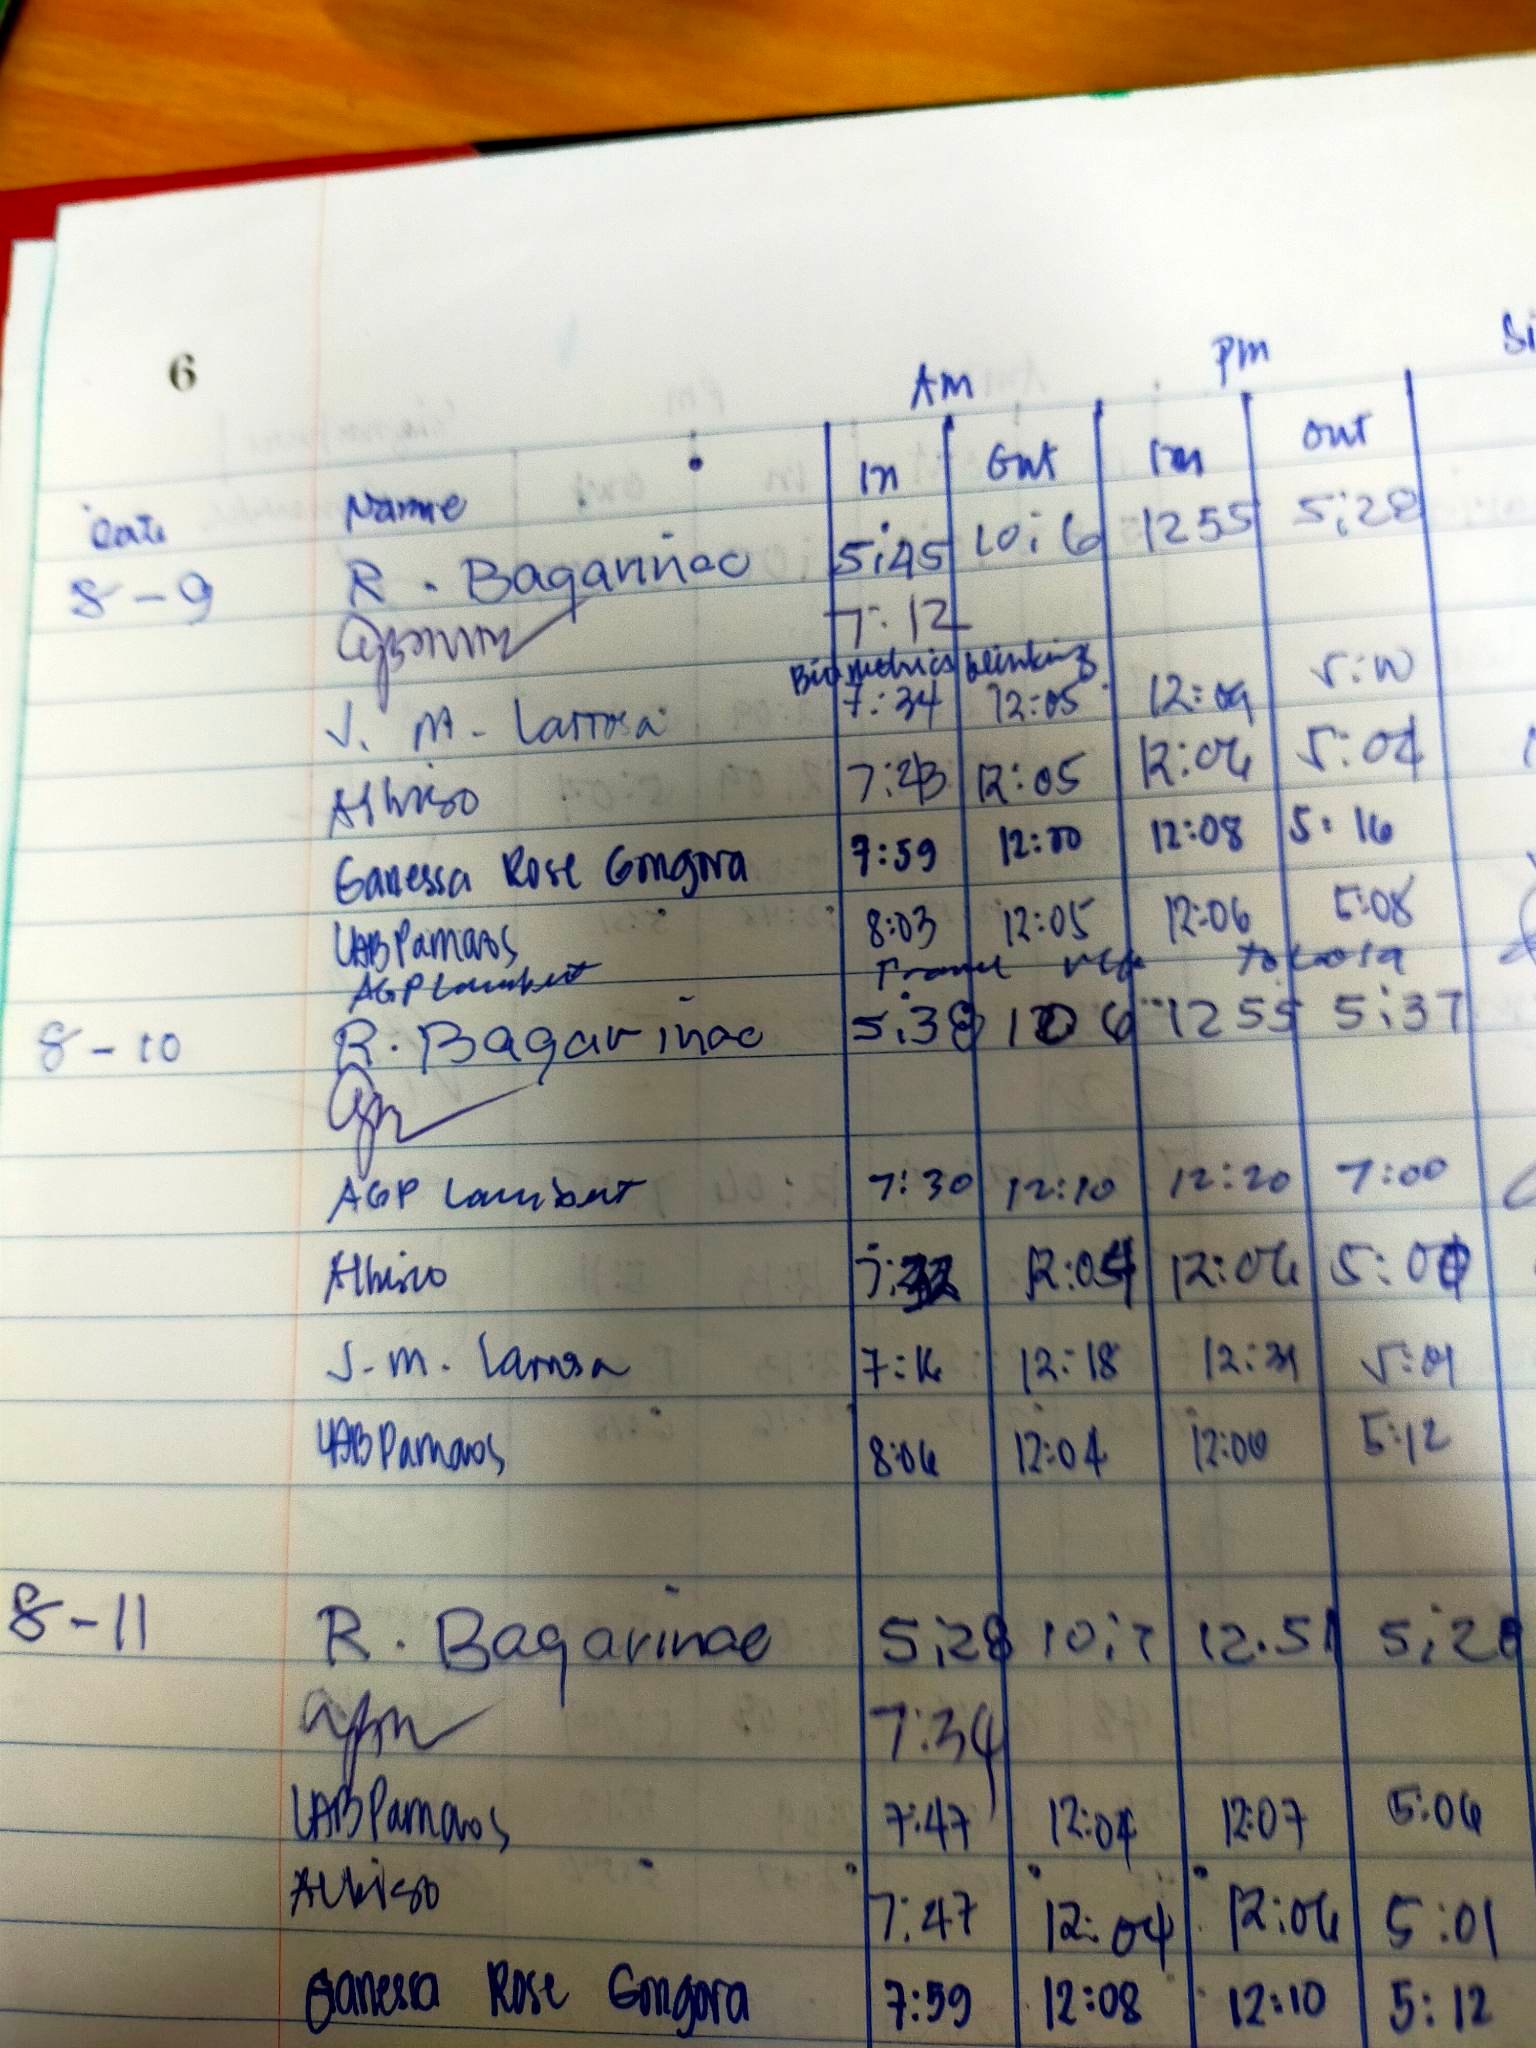 6
Am Pm
In Out In Out
Date Name
8-9 R. Bagarinao 5:45 10:6 1255 5:28
7:12
Biometrics blinking
J. M. Larrosa 7:34 12:05 12:09
7:23 12:05 12:06 5:04
Ganessa Rose Gongora 7:59 12:00 12:08 5:16
Pamaos 8:03 12:05 12:06 5:08
AGP Lambert Travel
8-10 R. Bagarinao 5:38 10 6 1255 5:37
AGP Lambert 7:30 12:10 12:20 7:00
12:04 12:06
J. M. Larrosa 7:16 12:18 12:21 5:01
Pamaos 8:06 12:04 12:06 5:12
8-11 R. Bagarinao 5:28 10:7 12.51 5:28
7:34
Pamaos 7:47 12:04 12:07 5:06
7:47 12:04 12:06 5:01
Ganessa Rose Gongora 7:59 12:08 12:10 5:12